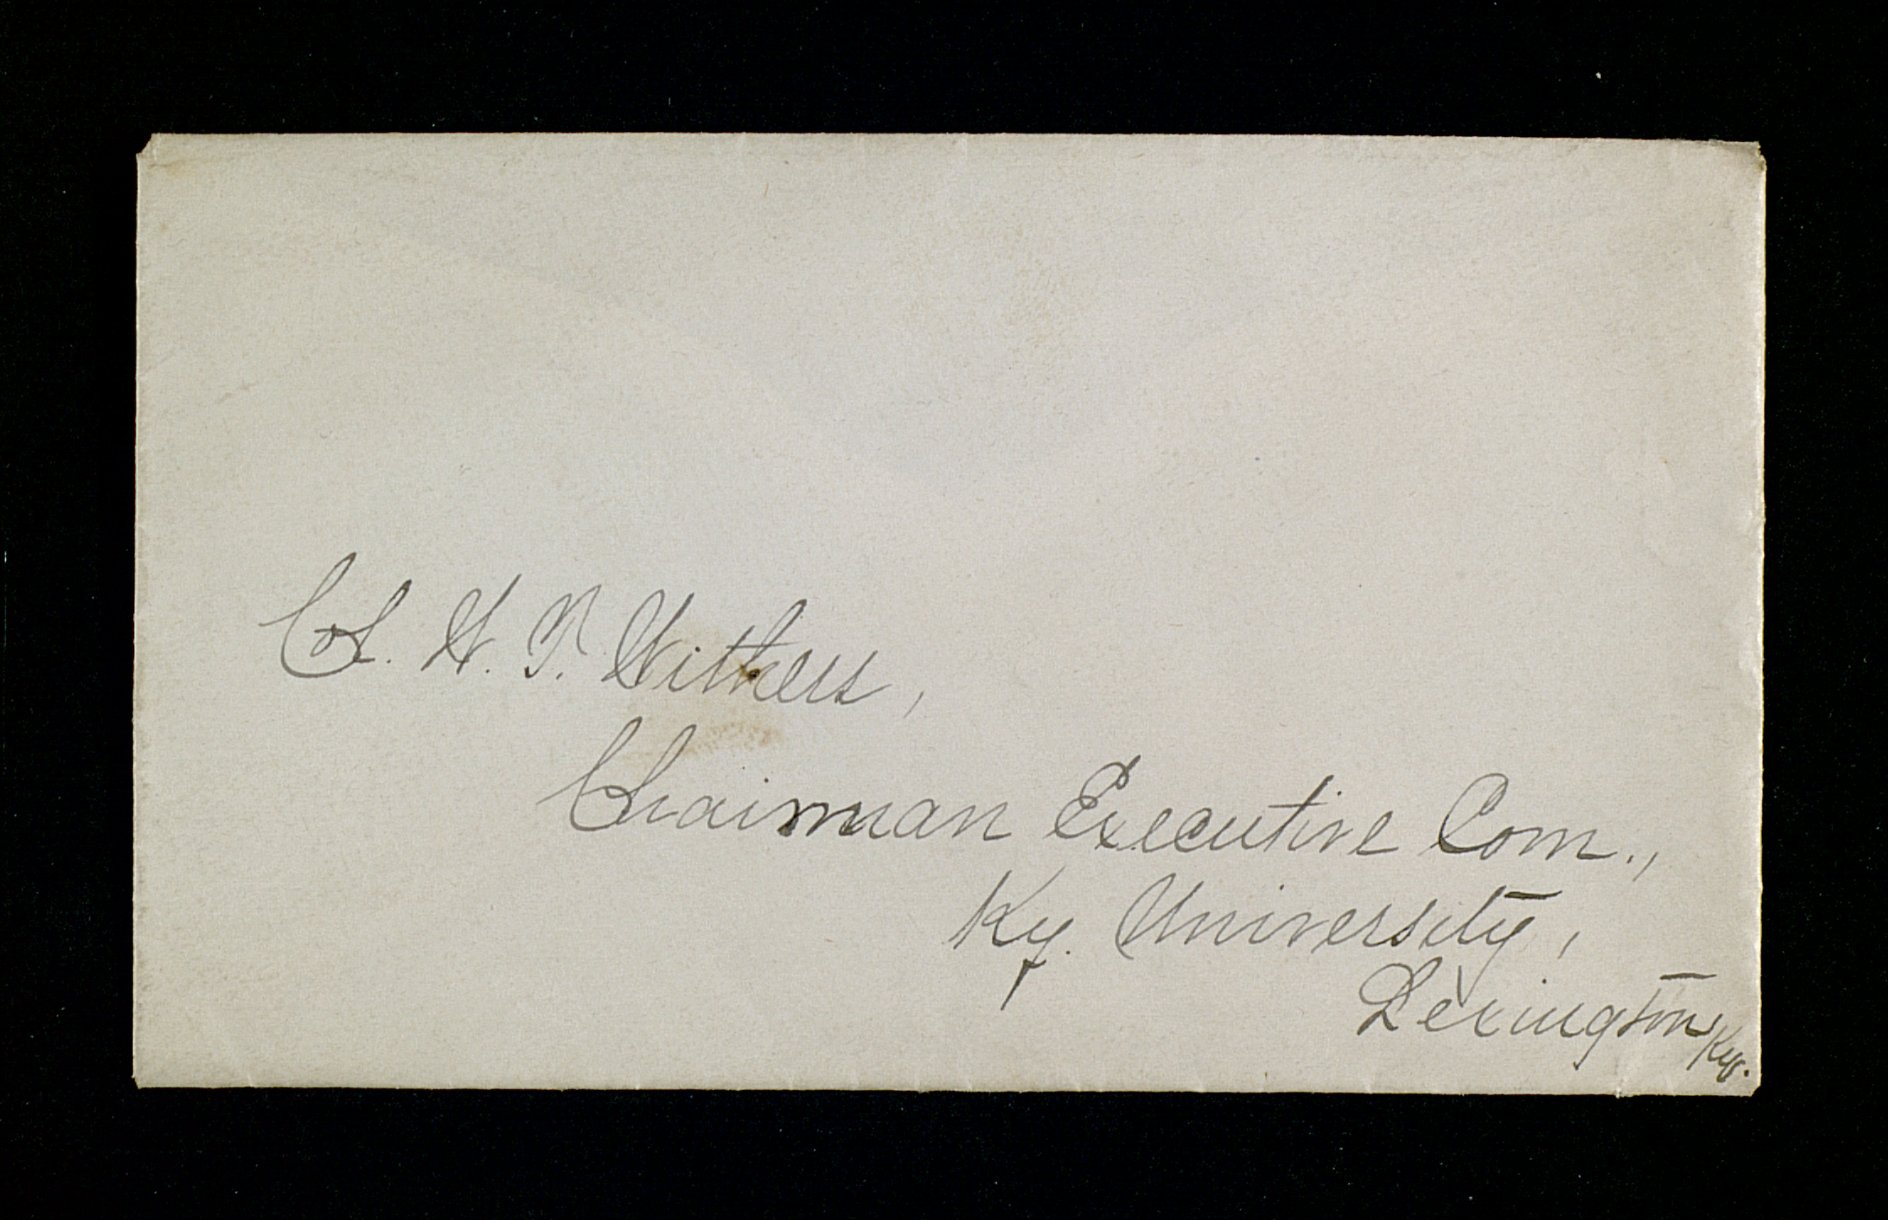 Col. W. T. Withers,
Chairman Executive Com.,
Ky. University,
Lexington
Ky.